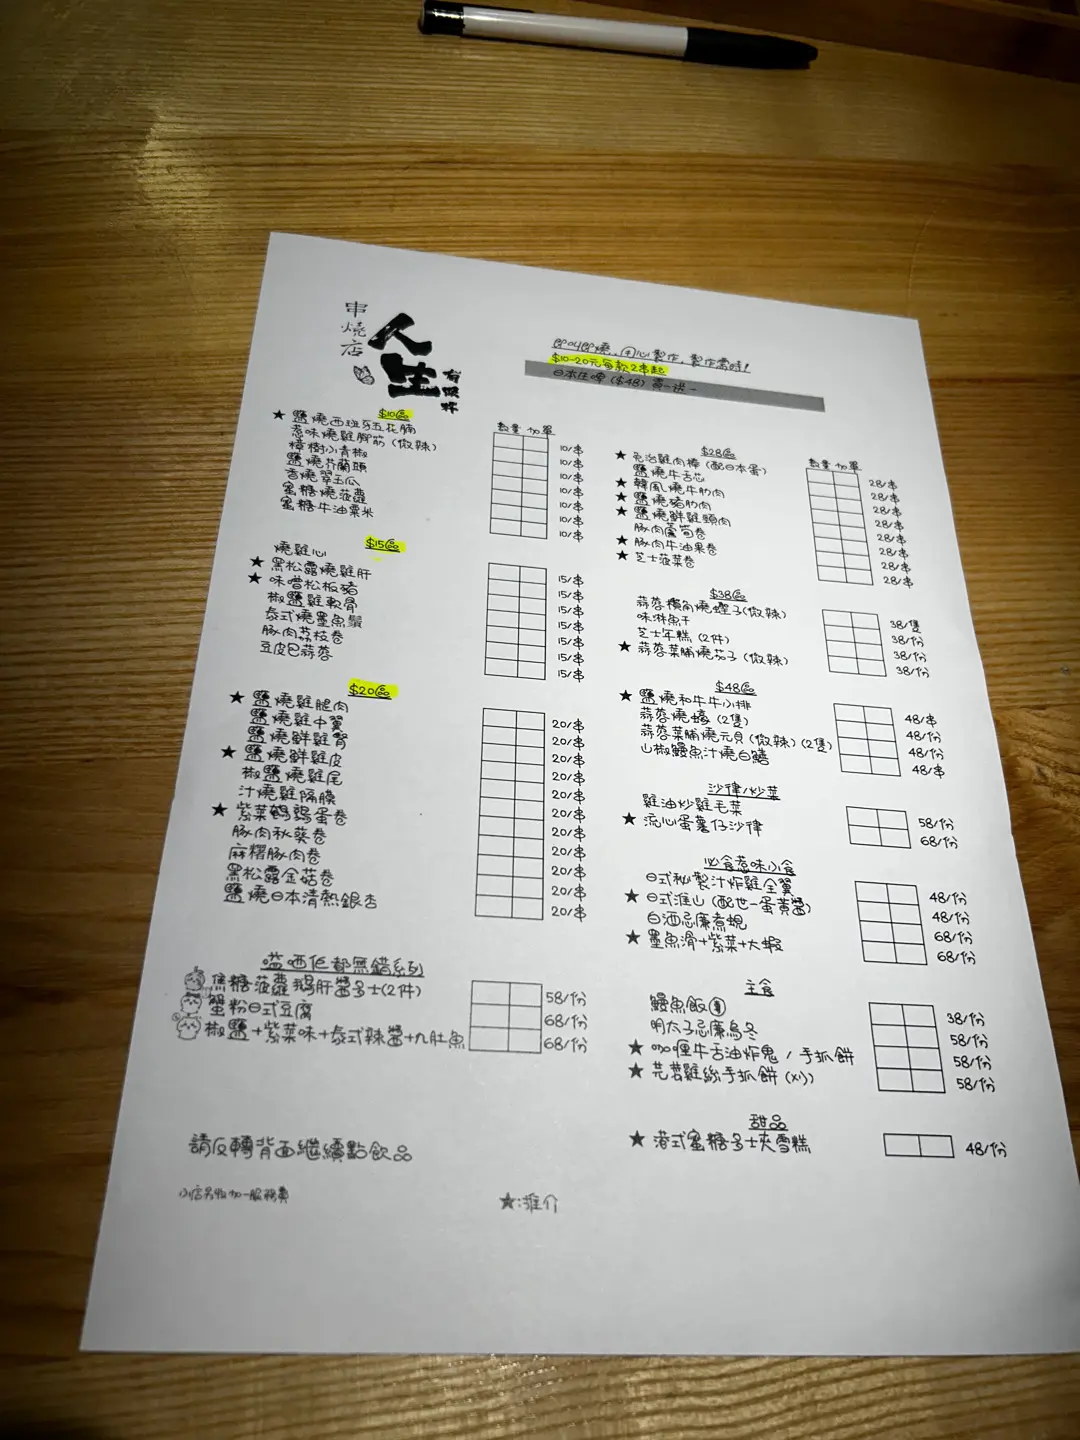 串燒店
人生
有限杯
即叫即燒，用心製作，製作需時！
$10-20元每款2串起
日本生啤 ($48) 買一送一
$10區
數量 加單
★ 鹽燒西班牙五花腩 10/串
惹味燒雞腳筋 (微辣) 10/串
樟樹小青椒 10/串
鹽燒芥蘭頭 10/串
香燒翠玉瓜 10/串
蜜糖燒菠蘿 10/串
蜜糖牛油粟米 10/串
$15區
燒雞心 15/串
★ 黑松露燒雞肝 15/串
★ 味噌松板豬 15/串
椒鹽雞軟骨 15/串
泰式燒墨魚鬚 15/串
豚肉荔枝卷 15/串
豆皮包蒜蓉 15/串
$20區
★ 鹽燒雞腿肉 20/串
鹽燒雞中翼 20/串
鹽燒鮮雞腎 20/串
★ 鹽燒鮮雞皮 20/串
椒鹽燒雞尾 20/串
汁燒雞隔膜 20/串
★ 紫菜鵪鶉蛋卷 20/串
豚肉秋葵卷 20/串
麻糬豚肉卷 20/串
黑松露金菇卷 20/串
鹽燒日本清熱銀杏 20/串
嗌哂佢都無錯系列
焦糖菠蘿鵝肝醬多士(2件) 58/份
蟹粉日式豆腐 68/份
椒鹽+紫菜味+泰式辣醬+九肚魚 68/份
請反轉背面繼續點飲品
小店另收加一服務費
★:推介
$28區
數量 加單
★ 免治雞肉棒 (配日本蛋) 28/串
鹽燒牛舌芯 28/串
★ 韓風燒牛肋肉 28/串
★ 鹽燒豬肋肉 28/串
★ 鹽燒鮮雞頸肉 28/串
豚肉蘆筍卷 28/串
★ 豚肉牛油果卷 28/串
★ 芝士菠菜卷 28/串
$38區
蒜蓉欖角燒蟶子 (微辣) 38/隻
味淋魚干 38/份
芝士年糕 (2件) 38/份
★ 蒜蓉菜脯燒茄子 (微辣) 38/份
$48區
★ 鹽燒和牛牛小排 48/串
蒜蓉燒蠔 (2隻) 48/份
蒜蓉菜脯燒元貝 (微辣) (2隻) 48/份
山椒鰻魚汁燒白鱔 48/串
沙律/炒菜
雞油炒雞毛菜 58/份
★ 流心蛋薯仔沙律 68/份
必食惹味小食
日式秘製汁炸雞全翼 48/份
★ 日式淮山 (配世一蛋黃醬) 48/份
白酒忌廉煮蜆 68/份
★ 墨魚滑+紫菜+大蝦 68/份
主食
鰻魚飯 38/份
明太子忌廉烏冬 58/份
★ 咖喱牛舌油炸鬼 / 手抓餅 58/份
★ 芫荽雞絲手抓餅 (メリ) 58/份
甜品
★ 港式蜜糖多士夾雪糕 48/份